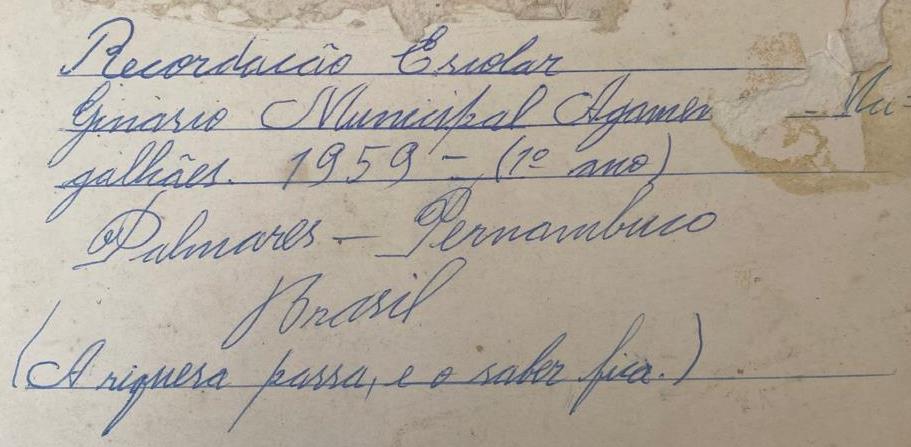 Recordacão Escolar
Ginásio Municipal Agamen - Ma=
galhães. 1959 - (1º ano)
Palmares - Pernambuco
Brasil
(A riquesa passa, e o saber fica.)